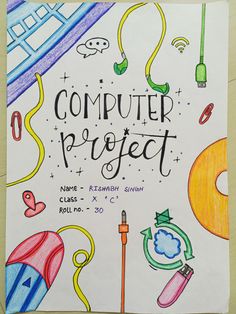 COMPUTER
project
Name - RISHABH SINGH
Class - X 'C'
Roll no. - 30